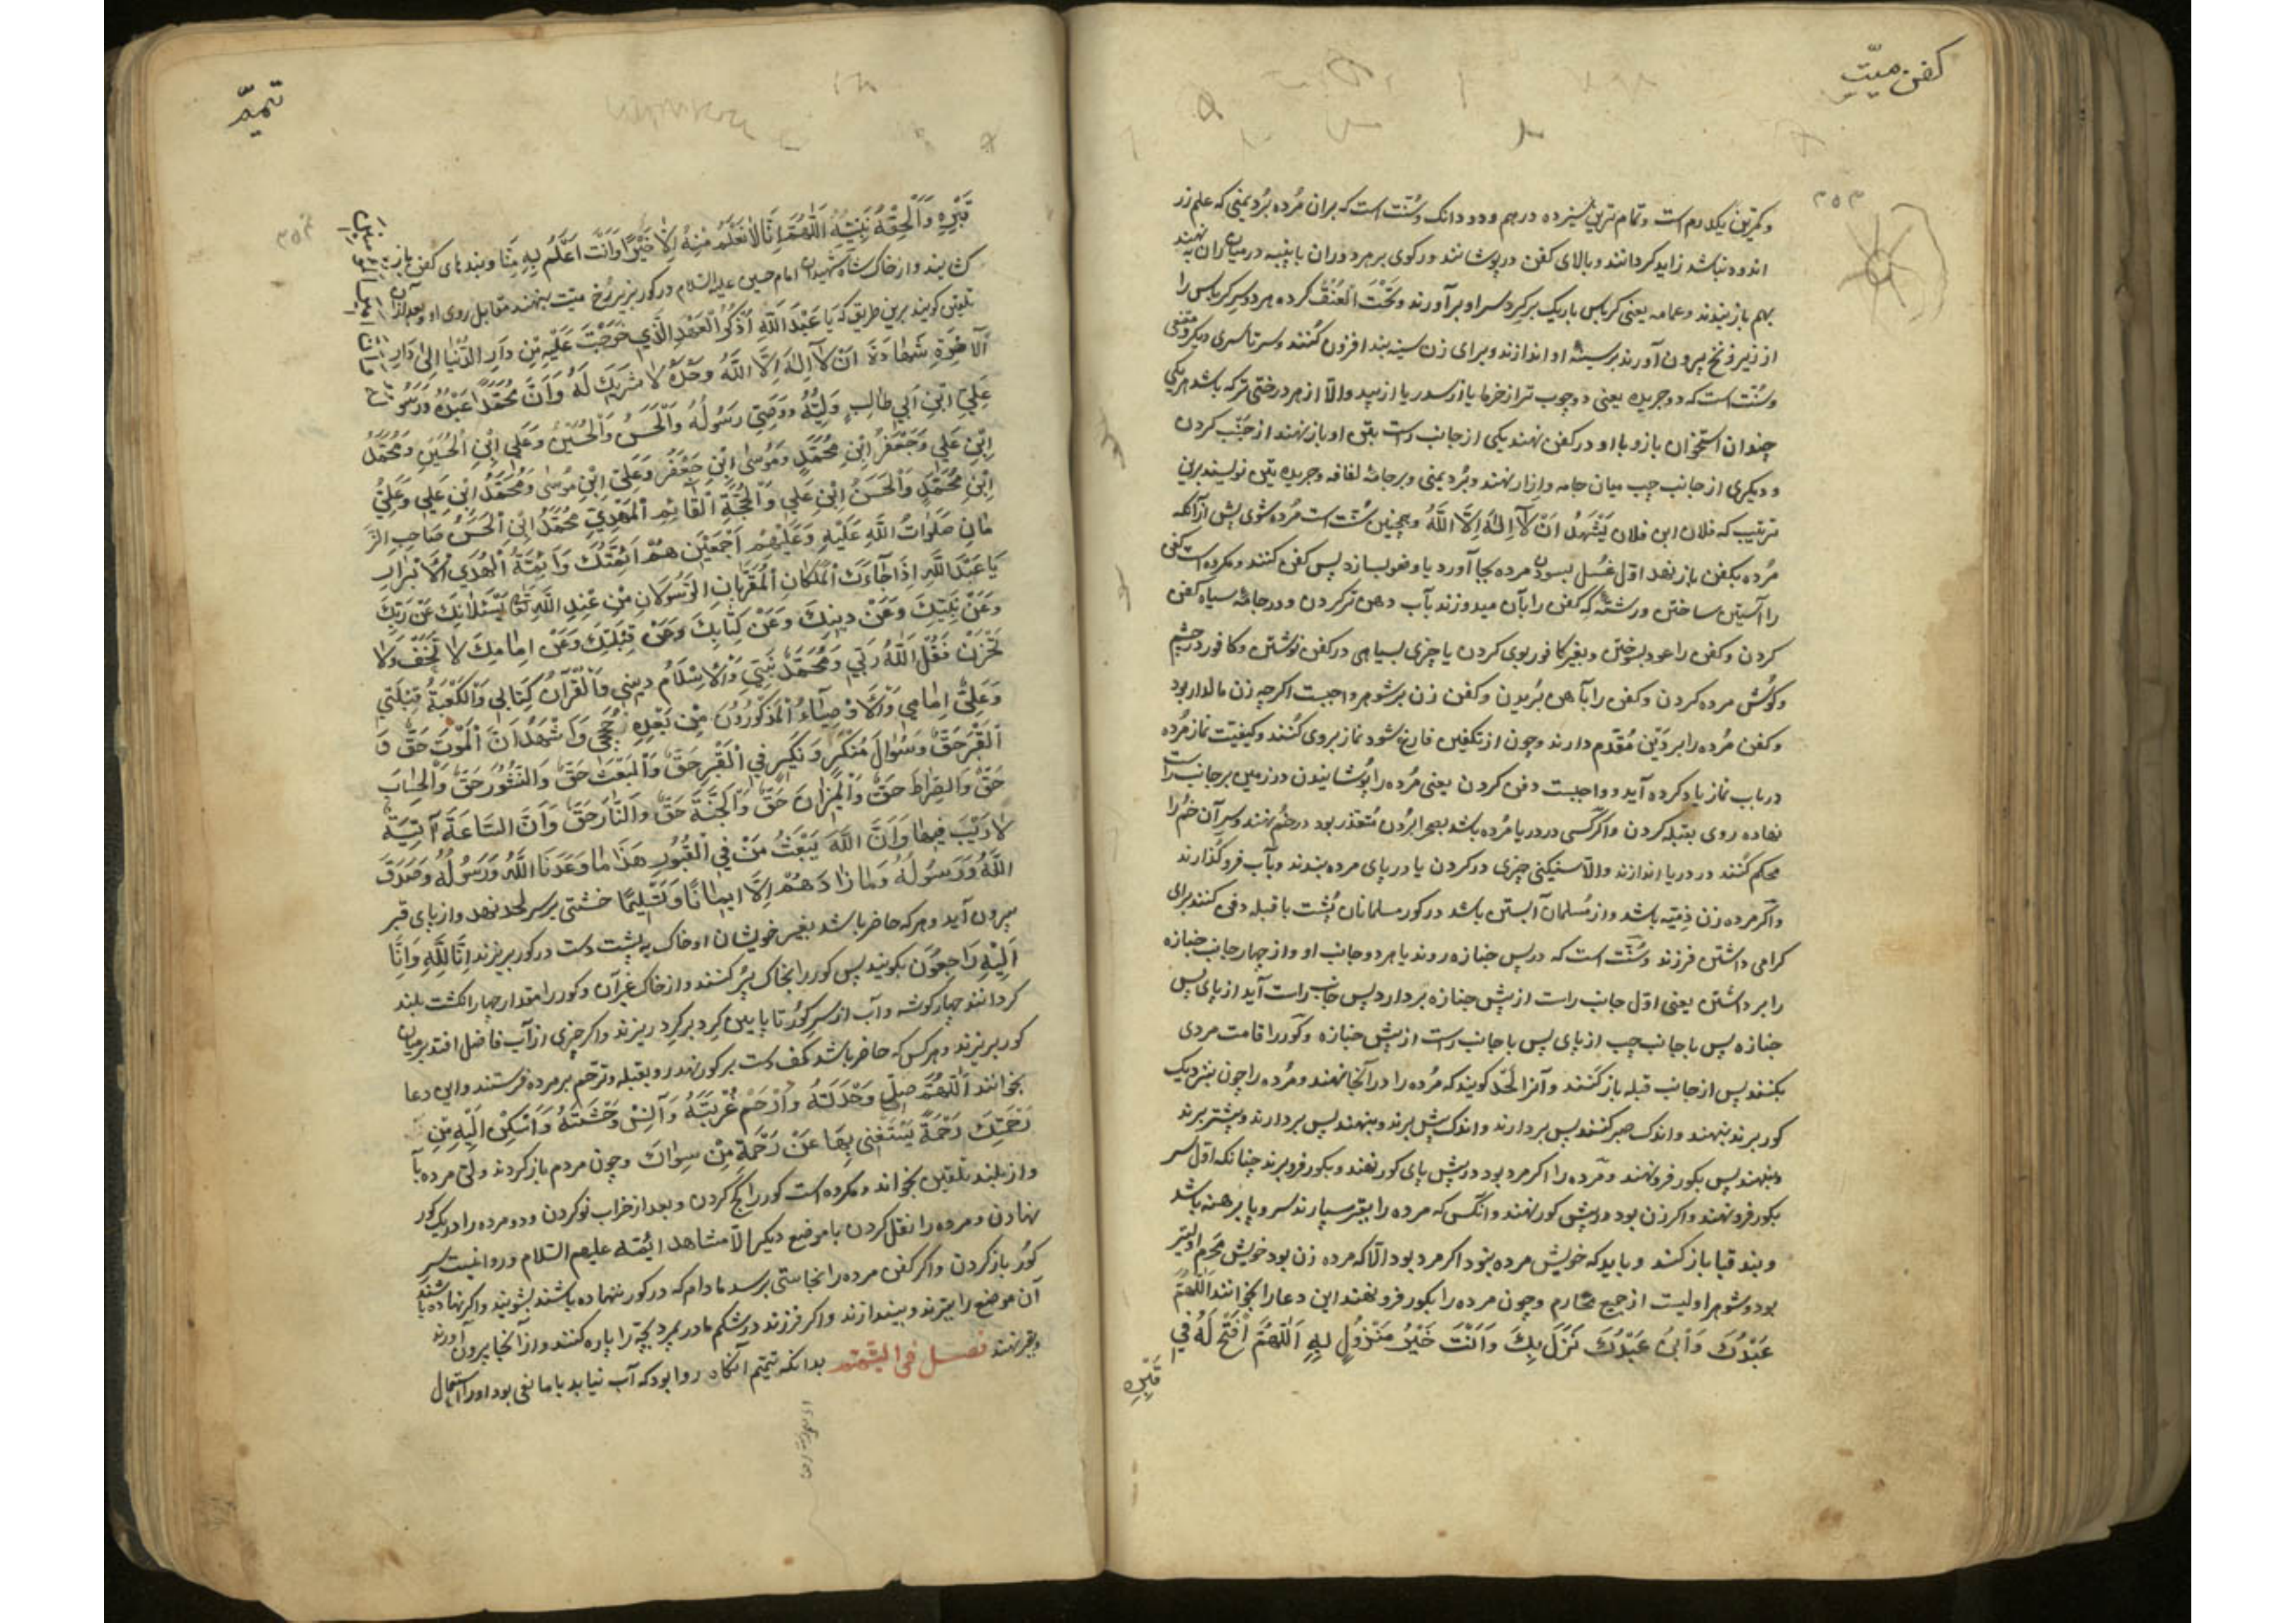 کفن میّت
۳۵۳
و کمترین یکدرم است و تمام ترین سیزده درهم و دو دانک و سُنّت است که بران مُرده بُرد یمنی که علم زر
اندوده نباشد زاید کردانند و بالای کفن درپوشانند و رکوی بر هر دو ران با پنبه در میان ران نهند
بهم باز بندند و عمامه یعنی کرباس باریک بر کرد سر او برآورند و تَحْتَ الْعُنُق کرده هر دو سر کرباس را
از زیر زنخ بیرون آورند بر سینه او اندازند و برای زن سینه بند افزون کُنند و سرتاسری دیکر و مقنعی
و سُنّت است که دو جریده یعنی دو چوب تر از خرما یا از سدر یا از بید والّا از هر درختی تر که باشد هر یکی
چندان استخوان بازو با او در کفن نهند یکی از جانب راست بتن او باز نهند از جَنب کردن
و دیکری از جانب چپ میان جامه و ازار نهند و بُرد یمنی و بر جامهٔ لفافه و جریدهٔ یتین نویسند برین
ترتیب که فلان ابن فلان یَشْهَدُ اَنْ لَآ اِلٰهَ اِلَّا اللّٰهُ و همچنین سُنّت است مُرده شوی پیش از آنکه
مُرده بکفن باز نهد اوّل غُسل بسودن مرده بجا آورد یا وضو بسازد پس کفن کنند و مکروه است کفن
را آستین ساختن و رشتهٔ که کفن را بآن میدوزند بآب دهن تر کردن و در جامهٔ سیاه کفن
کردن و کفن را عود بسوختن و بغیر کافور بوی کردن یا چیزی بسیاهی در کفن نوشتن و کافور در چشم
و کوش مرده کردن و کفن را بآهن بُریدن و کفن زن بر شوهر واجبست اکرچه زن مالدار بود
و کفن مُرده را بر دَین مُقدّم دارند و چون از تکفین فارغ شود نماز بر وی کُنند و کیفیّت نماز مُرده
در باب نماز یاد کرده آید و واجبست دفن کردن یعنی مُرده را پُوشانیدن در زمین بر جانب راست
نهاده روی بقبله کردن و اکر کسی در دریا مُرده باشد بصحرا بُردن مُتعذّر بود در خُم نهند و سر آن خُم را
محکم کُنند در دریا اندازند والّا سنکینی چیزی در کردن یا در پای مرده بندند و بآب فرو کُذارند
و اکر مرده زن ذِمّیّه باشد و از مُسلمان آبستن باشد در کور مسلمانان پُشت با قبله دفن کنند برای
کرامی داشتن فرزند و سُنّت است که در پس جنازه روند یا هر دو جانب او و از چهار جانب جنازه
را بر داشتن یعنی اوّل جانب راست از پیش جنازه بردارد پس جانب راست آید از پای پس
جنازه پس با جانب چپ از پای پس با جانب راست از پیش جنازه و کور را قامت مردی
بکنند پس از جانب قبله باز کنند و آنرا لَحَد کویند که مُرده را در آنجا نهند و مُرده را چون بنزدیک
کور برند بنهند و اندک صبر کنند پس بردارند و اندک پیش برند و بنهند پس بردارند و پیشتر برند
و بنهند پس بکور فرو نهند و مرده را اکر مرد بود در پیش پای کور نهند و بکور فرو برند چنانکه اوّل سر
بکور فرو نهند و اکر زن بود در پیش کور نهند و آنکس که مرده را بقبر سپارند سر و پا برهنه باشد
و بند قبا باز کند و باید که خویش مرده بنود اکر مرد بود الّا که مرده زن بود خویش مَحرم اولیتر
بود و شوهر اولیست از جمیع محارم و چون مرده را بکور فرو نهند این دعا را بخوانند اَللّٰهُمَّ
عَبْدُكَ وَابْنُ عَبْدِكَ نَزَلَ بِكَ وَاَنْتَ خَیْرُ مَنْزُولٍ بِهِ اَللّٰهُمَّ افْتَحْ لَهُ فِی
قَبْرِهِ
تیمّم
۳۵۴
قَبْرِهِ وَاَلْحِقْهُ نَبِیَّهُ اَللّٰهُمَّ اِنَّا لَا نَعْلَمُ مِنْهُ اِلَّا خَیْرًا وَاَنْتَ اَعْلَمُ بِهِ مِنَّا و بندهای کفن باز
کشایند و از خاک شاه شهیدان امام حسین علیه السلام در کور بزیر رُخ میّت بنهند مقابل روی او و بعد از آن
تلقین کویند برین طریق که یَا عَبْدَ اللّٰهِ اُذْکُرِ الْعَهْدَ الَّذِی خَرَجْتَ عَلَیْهِ مِنْ دَارِ الدُّنْیَا اِلٰی دَارِ
الْآخِرَةِ شَهَادَةَ اَنْ لَآ اِلٰهَ اِلَّا اللّٰهُ وَحْدَهُ لَا شَرِیكَ لَهُ وَاَنَّ مُحَمَّدًا عَبْدُهُ وَرَسُو
عَلِیَّ ابْنَ اَبِی طَالِبٍ وَلِیُّهُ وَوَصِیُّ رَسُولُهُ وَالْحَسَنُ وَالْحُسَیْنُ وَعَلِیُّ ابْنُ الْحُسَیْنِ وَمُحَمَّدُ
ابْنِ عَلِی وَجَعْفَرُ ابْنِ مُحَمَّدٍ وَمُوسٰی ابْنِ جَعْفَرُ وَعَلِیُّ ابْنِ مُوسٰی وَمُحَمَّدُ ابْنِ عَلِی وَعَلِیُّ
ابْنِ مُحَمَّدٍ وَالْحَسَنُ ابْنِ عَلِی وَالْحُجَّةِ الْقَائِمِ الْمَهْدِیِّ مُحَمَّدُ ابْنِ الْحَسَنُ صَاحِبِ الزَّ
مَانِ صَلَوَاتُ اللّٰهِ عَلَیْهِ وَعَلَیْهِمْ اَجْمَعِیْنَ هُمْ اَئِمَّتُكَ وَاَئِمَّةُ الْهُدَی الْاَبْرَارِ
یَا عَبْدَ اللّٰهِ اِذَا جَآءَكَ الْمَلَکَانِ الْمُقَرَّبَانِ الرَّسُولَانِ مِنْ عِنْدِ اللّٰهِ تَعَ یَسْئَلَانِكَ عَنْ رَبِّكَ
وَعَنْ نَبِیِّكَ وَعَنْ دِینِكَ وَعَنْ کِتَابِكَ وَعَنْ قِبْلَتِكَ وَعَنْ اِمَامِكَ لَا تَخَفْ وَلَا
تَحْزَنْ فَقُلْ اَللّٰهُ رَبِّی وَمُحَمَّدٌ نَبِیِّ وَالْاِسْلَامُ دِینِی وَالْقُرْآنُ کِتَابِی وَالْکَعْبَةُ قِبْلَتِی
وَعَلِیٌّ اِمَامِی وَالْاَوْصِیَآءُ الْمَذْکُورُونَ مِنْ بَعْدِهِ حُجَجِی وَاَشْهَدُ اَنَّ الْمَوْتَ حَقٌّ وَ
الْقَبْرَ حَقٌّ وَسُوَالَ مُنْکَرٍ وَنَکِیرٍ فِی الْقَبْرِ حَقٌّ وَالْبَعْثَ حَقٌّ وَالنُّشُورَ حَقٌّ وَالْحِسَابَ
حَقٌّ وَالصِّرَاطَ حَقٌّ وَالْمِیزَانَ حَقٌّ وَالْجَنَّةَ حَقٌّ وَالنَّارَ حَقٌّ وَاَنَّ السَّاعَةَ آتِیَةٌ
لَا رَیْبَ فِیهَا وَاَنَّ اللّٰهَ یَبْعَثُ مَنْ فِی الْقُبُورِ هَذَا مَا وَعَدَنَا اللّٰهُ وَرَسُولُهُ وَصَدَقَ
اللّٰهُ وَرَسُولُهُ وَمَا زَادَهُمْ اِلَّا اِیمَانًا وَتَسْلِیمًا خشتی بر سر لحد نهد و از پای قبر
بیرون آید و هر که حاضر باشد بغیر خویشان او خاک به پشت دست در کور بریزند اِنَّا لِلّٰهِ وَاِنَّا
اِلَیْهِ رَاجِعُونَ بکویند پس کور را بخاک پُر کنند و از خاک غیر آن و کور را مقدار چهار انکشت بلند
کردانند چهار کوشه و آب از سر کور تا پایین کِرد بر کِرد ریزند و اکر چیزی از آب فاضل افتد بر میان
کور بریزند و هر کس که حاضر باشد کف دست بر کور نهد رو بقبله و ترحّم بر مرده فرستند و این دعا
بخوانند اَللّٰهُمَّ صِلْ وَحْدَتَهُ وَارْحَمْ غُرْبَتَهُ وَآنِسْ وَحْشَتَهُ وَاَسْکِنْ اِلَیْهِ مِنْ
رَحْمَتِكَ رَحْمَةً یَسْتَغْنِی بِهَا عَنْ رَحْمَةِ مِنْ سِوَاكَ و چون مردم باز کردند ولیّ مرده بآ
واز بلند تلقین بخواند و مکروه است کور را کج کردن و بعد از خراب نو کردن و دو مرده را در یک کور
نهادن و مرده را نقل کردن با موضع دیکر الّا مشاهد ائمّه علیهم السلام و روا نیست سر
کور باز کردن و اکر کفن مرده را نجاستی برسد مادام که در کور ننهاده باشند بشویند و اکر نهاده باشند
آن موضع را ببرند و بیندازند و اکر فرزند در شکم مادر بمرد بچّه را پاره کنند و از آنجا بیرون آورند
و بقبر نهند فصل فی التیمّم بدانکه تیمّم آنکاه روا بود که آب نیابد یا مانعی بود او را استعمال